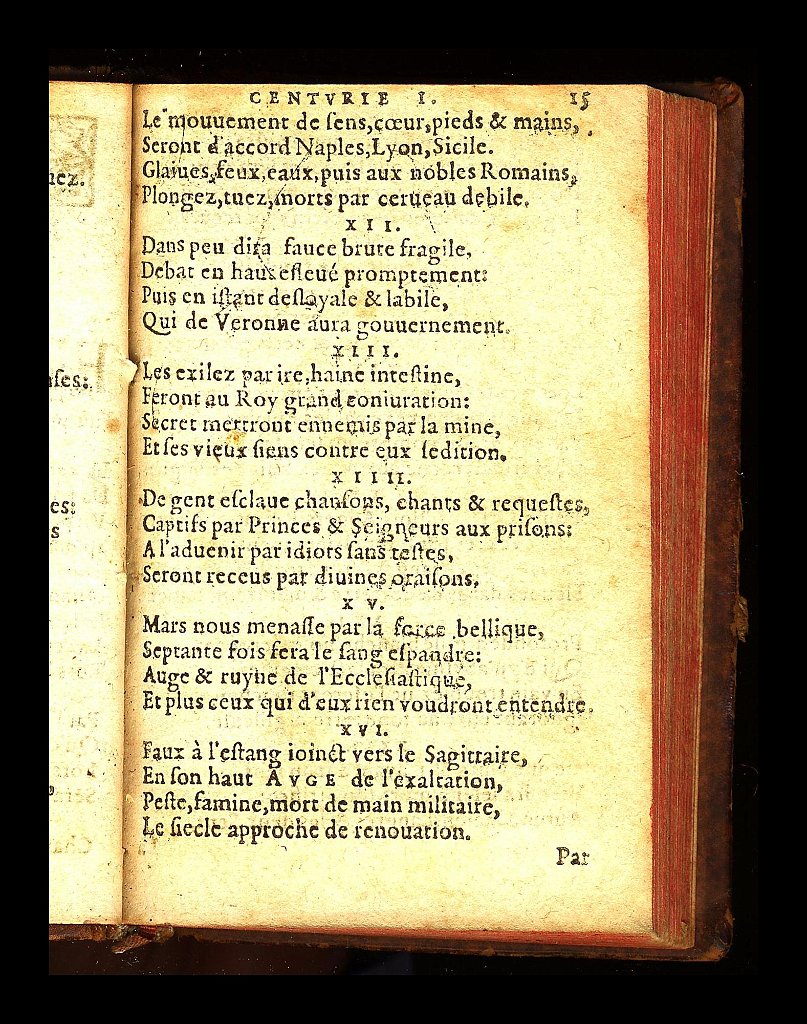 CENTVRIE I. 15
Le mouuement de ſens,cœur,pieds & mains,
Seront d'accord Naples,Lyon,Sicile.
Glaiues,feux,eaux,puis aux nobles Romains,
Plongez,tuez,morts par cerueau debile.
XII.
Dans peu dira fauce brute fragile,
Debat en haut eſleué promptement:
Puis en iſtant deſloyale & labile,
Qui de Veronne aura gouuernement.
XIII.
Les exilez par ire,haine inteſtine,
Feront au Roy grand coniuration:
Secret mettront ennemis par la mine,
Et ſes vieux ſiens contre eux ſedition.
XIIII.
De gent eſclaue chanſons, chants & requeſtes,
Captifs par Princes & Seigneurs aux priſons:
A l'aduenir par idiots ſans teſtes,
Seront receus par diuines oraiſons.
XV.
Mars nous menaſſe par la force bellique,
Septante fois fera le ſang eſpandre:
Auge & ruyne de l'Eccleſiaſtique,
Et plus ceux qui d'eux rien voudront entendre.
XVI.
Faux à l'eſtang ioinct vers le Sagittaire,
En ſon haut AVGE de l'exaltation,
Peſte,famine,mort de main militaire,
Le ſiecle approche de renouation.
Par
uez.
ſes:
es:
s